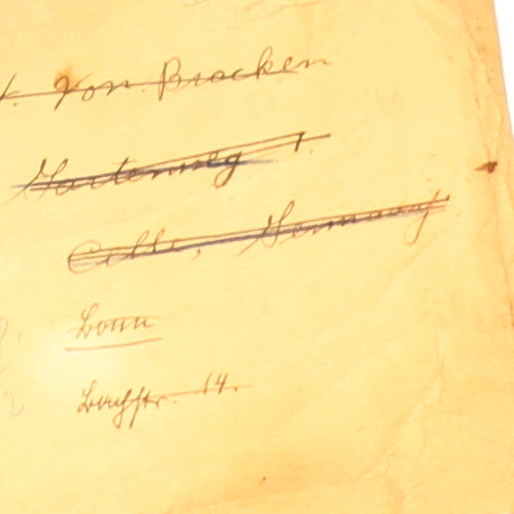 . von Bracken
Gartenweg 1.
Celle, Germany
Bonn
Bachstr. 14.